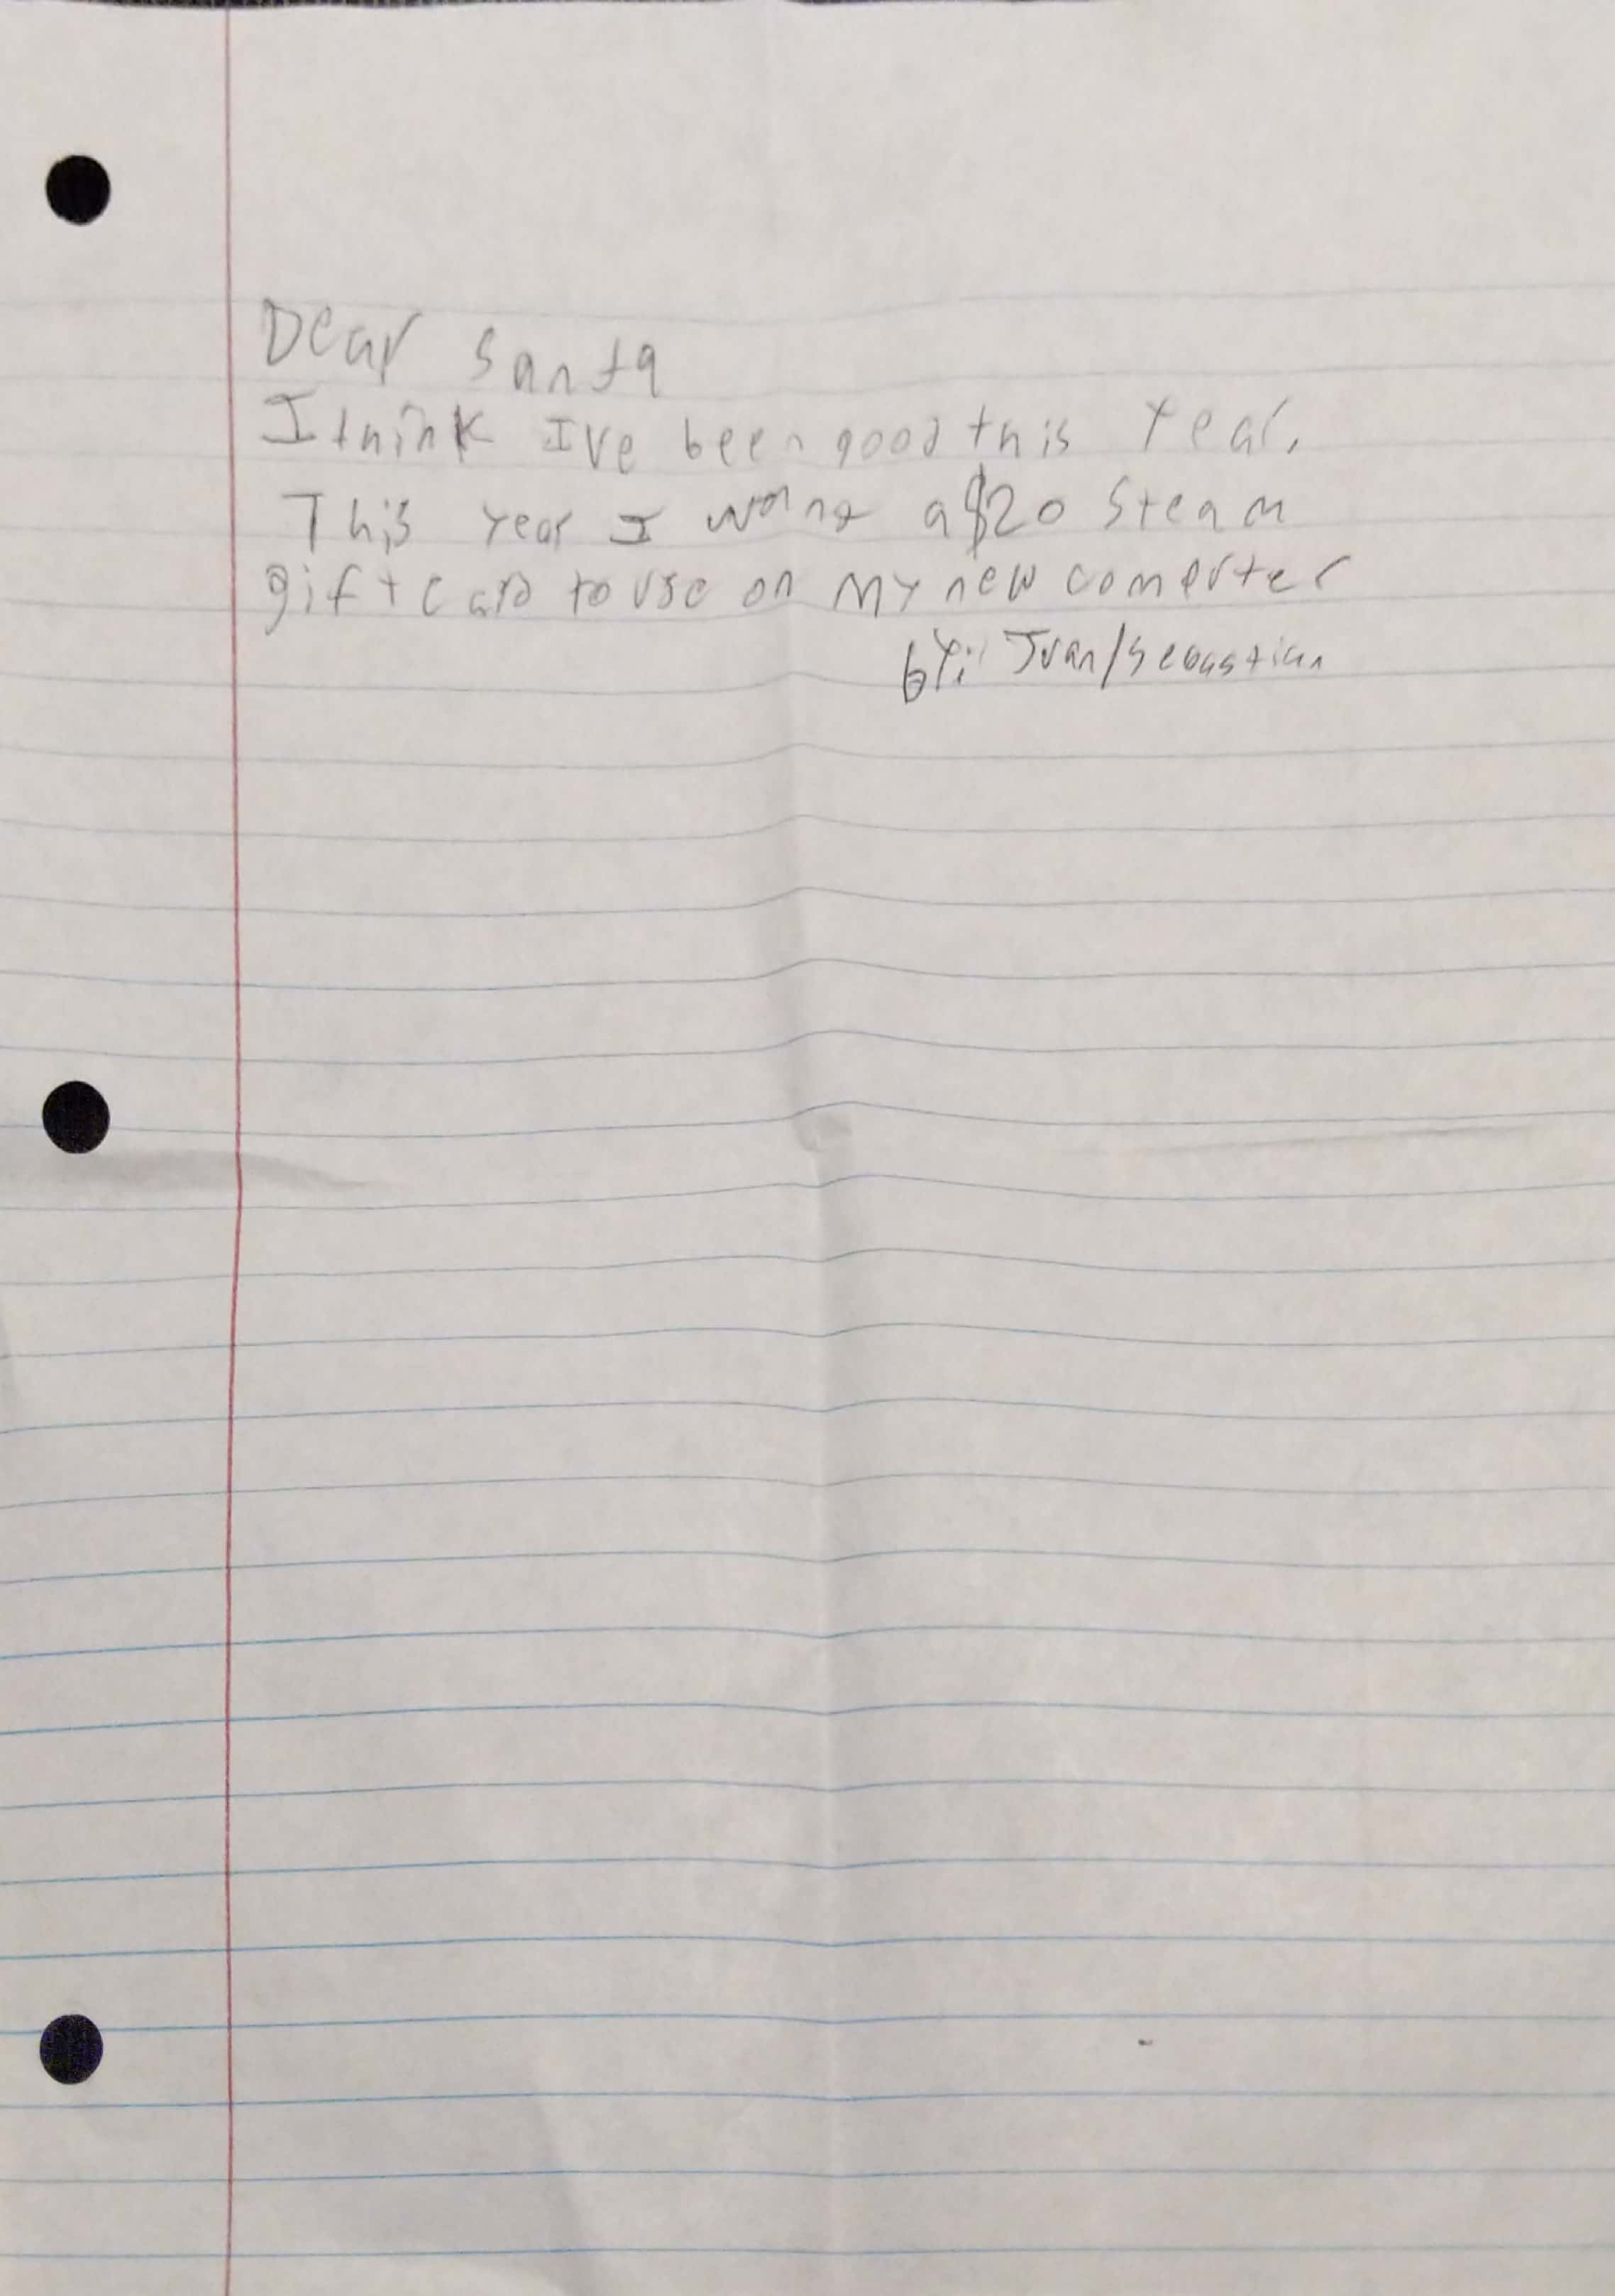 Dear Santa
I think Ive been good this Year.
This Year I want a $20 Steam
gift card to use on My new comeputer
bY: Juan/Sebastian